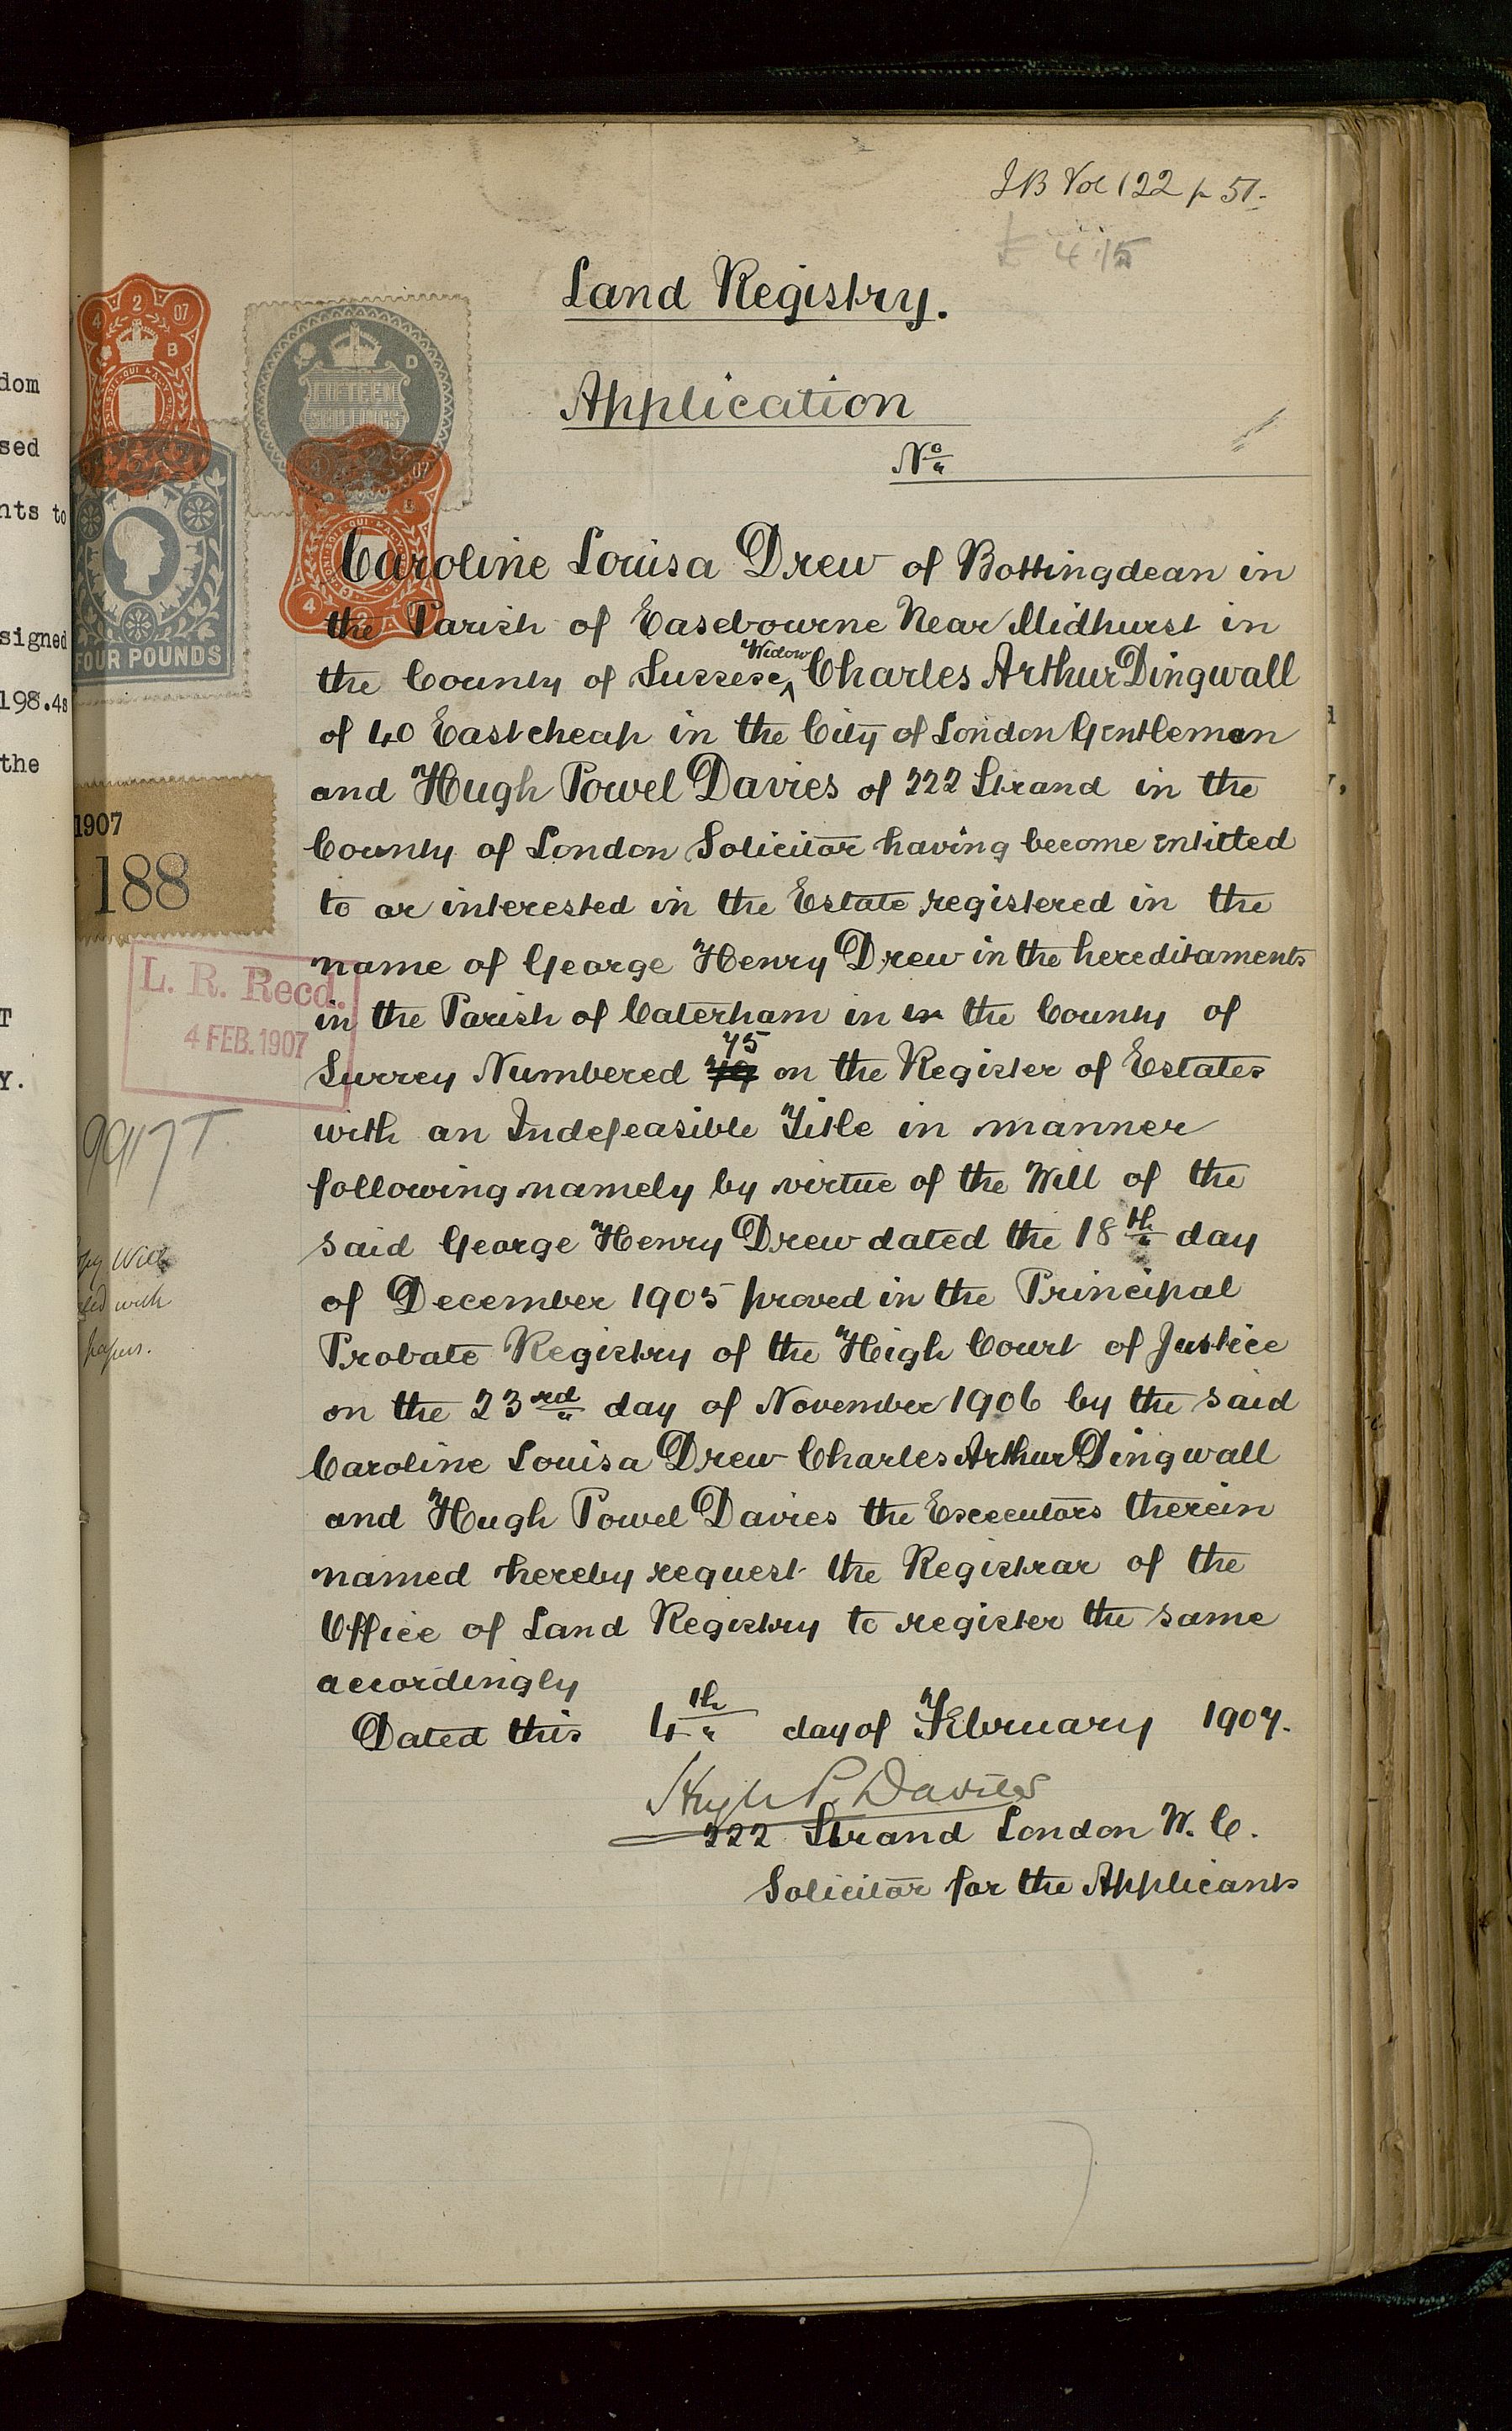 JB Vol 122 p 51.
£ 4.15
Land Registry.
Application
No.
Caroline Louisa Drew of Bottingdean in
the Parish of Easebourne Near Midhurst in
the County of Sussex Widow Charles Arthur Dingwall
of 40 Eastcheap in the City of London Gentleman
and Hugh Powel Davies of 222 Strand in the
County of London Solicitor having become entitled
to or interested in the Estate registered in the
name of George Henry Drew in the hereditaments
in the Parish of Caterham in in the County of
Surrey Numbered 75 on the Register of Estates
with an Indefeasible Title in manner
following namely by virtue of the Will of the
said George Henry Drew dated the 18th day
of December 1905 proved in the Principal
Probate Registry of the High Court of Justice
on the 23rd day of November 1906 by the said
Caroline Louisa Drew Charles Arthur Dingwall
and Hugh Powel Davies the Executors therein
named hereby request the Registrar of the
Office of Land Registry to register the same
accordingly
Dated this 4th day of February 1907.
Hugh P. Davies
222 Strand London W. C.
Solicitor for the Applicants
4 2 07
B
FIFTEEN
SHILLINGS
D
4 2 07
FOUR POUNDS
1907
188
L. R. Recd.
4 FEB. 1907
9917 T.
Will
with
papers.
dom
sed
nts to
signed
198.4s
the
T
Y.